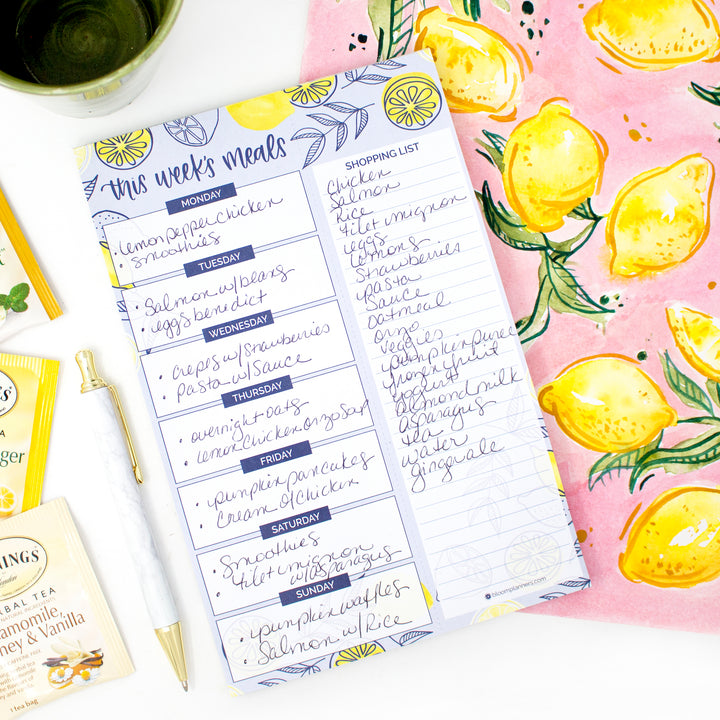 this week's meals
MONDAY
• Lemon pepper chicken
• Smoothies
TUESDAY
• Salmon w/ beans
• eggs benedict
WEDNESDAY
• Crepes w/ Strawberries
• pasta w/ Sauce
THURSDAY
• overnight oats
• Lemon Chicken Orzo Soup
FRIDAY
• pumpkin pancakes
• Cream of Chicken
SATURDAY
• Smoothies
• filet mignon
w/ asparagus
SUNDAY
• pumpkin waffles
• Salmon w/ Rice
SHOPPING LIST
Chicken
Salmon
Rice
filet mignon
eggs
lemons
Strawberries
pasta
Sauce
Oatmeal
Orzo
Veggies
pumpkin puree
frozen fruit
yogurt
almond milk
asparagus
tea
water
gingerale
bloomplanners.com
NINGS
HERBAL TEA
Chamomile,
Honey & Vanilla
1 tea bag